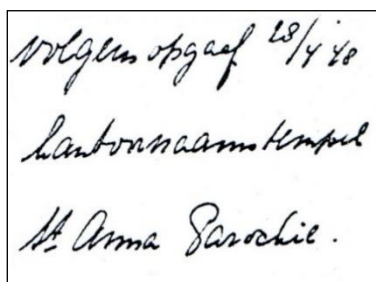 volgens opgaaf 28/4 48
kantoornaamstempel
St Anna Parochie.